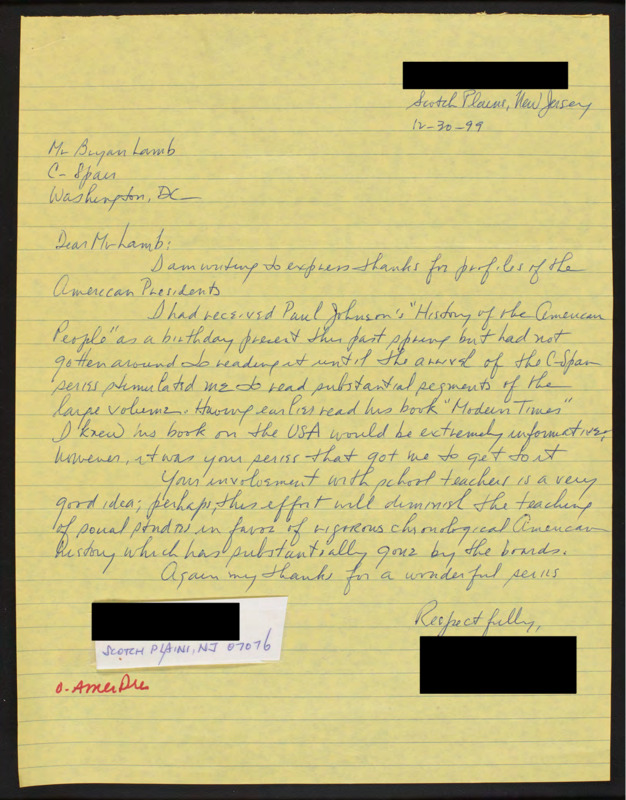 Scotch Plains, New Jersey
12-30-99
Mr Bryan Lamb
C-Span
Washington, DC
Dear Mr Lamb:
I am writing to express thanks for profiles of the
American Presidents
I had received Paul Johnson's "History of the American
People" as a birthday present this past spring but had not
gotten around to reading it until the arrival of the C-Span
series stimulated me to read substantial segments of the
large volume. Having earlier read his book "Modern Times"
I knew his book on the USA would be extremely informative;
however, it was your series that got me to get to it
Your involvement with school teachers is a very
good idea; perhaps, this effort will diminish the teaching
of social studies in favor of rigorous chronological American
history which has substantially gone by the boards.
Again my thanks for a wonderful series
Respectfully,
SCOTCH PLAINS, NJ 07076
O-AmerPres